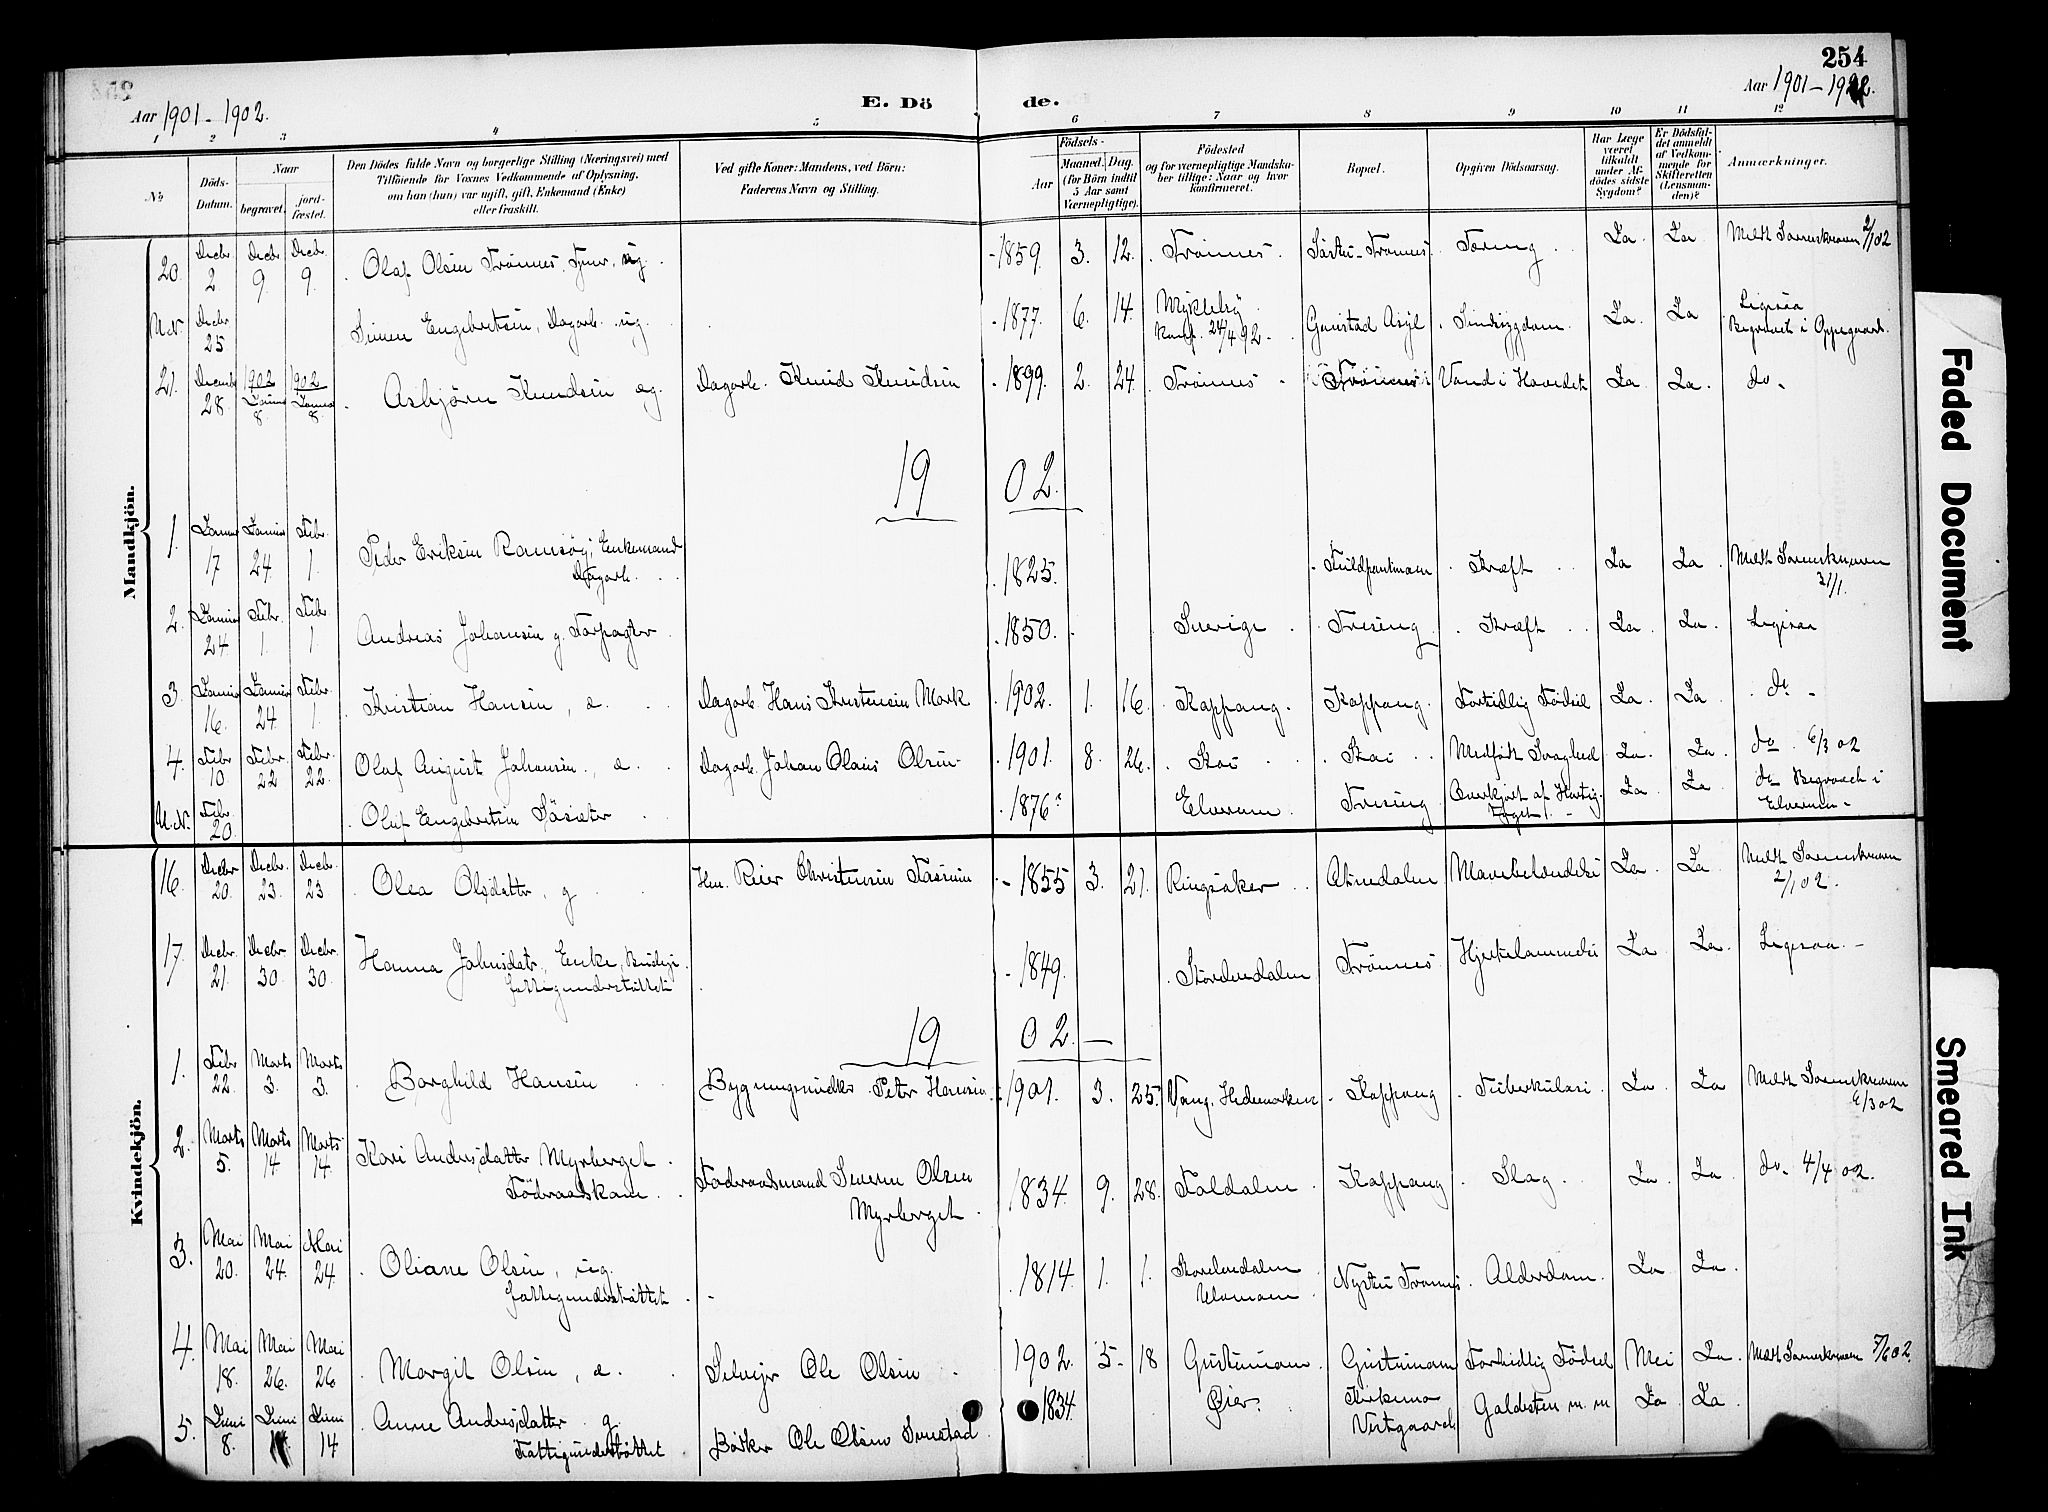 254
Aar 1901 - 1902.
E. Döde.
Aar 1901 - 1902.
1 2 3 4 5 6 7 8 9 10 11 12
No
Döds-
Datum.
Naar
begravet.
jord-
fæstet.
Den Dödes fulde Navn og borgerlige Stilling (Næringsvei) med
Tilföiende for Voxnes Vedkommende af Oplysning,
om han (hun) var ugift, gift, Enkemand (Enke)
eller fraskilt.
Ved gifte Koner: Mandens, ved Börn:
Faderens Navn og Stilling.
Födsels-
Aar
Maaned. Dag.
(for Börn indtil
5 Aar samt
Værnepligtige).
Födested
og for værnepligtige Mandska-
ber tillige: Naar og hvor
konfirmeret.
Bopæl.
Opgiven Dödsaarsag.
Har Læge
været
tilkaldt
under Af-
dödes sidste
Sygdom?
Er Dödsfal-
det anmeldt
af Vedkom-
mende for
Skifteretten
(Lensman-
den)?
Anmærkninger.
Mandkjön.
20. Decbr 2. Decbr 9. Decbr 9. Olaf Olsen Trönnes, ug. 1859. 3. 12. Trönnes. Søstu-Trönnes. Tæring. Ja Ja Meldt Sorenskriveren 2/1 02
U.N. Decbr 25 Simen Engebretsen, Dagarb. ug. 1877. 6. 14. Mykleby Konf. 24/4 92. Gaustad Asyl. Sindssygdom. Ja Ja Ligesaa Begravet i Oppegaard.
21. Decemb 28. 1902 Januar 8. 1902 Januar 8. Asbjørn Knudsen æg. Dagarb. Knud Knudsen 1899. 2. 24. Trönnes Trönnes Vand i Hovedet Ja Ja. do.
1902.
1. Januar 17 Januar 24. Febr. 1. Peder Eriksen Ramsøy, Enkemand Dagarb. 1825. Kræft Ja Ja Meldt Sorenskriveren 31/1.
2. Januar 24 Febr. 1. Febr 1. Andreas Johansen g. Forpagter 1850. Sverige Treseng. Kræft Ja. Ja. Ligesaa
3. Januar 16. Januar 24. Febr. 1. Kristian Hansen, æ. Dagarb. Hans Kristensen Mork 1902. 1. 16. Koppang. Koppang. Fortidlig Födsel Ja. Ja. do
4. Febr 10 Febr. 22 Febr. 22. Olaf August Johansen, æ. Dagarb. Johan Olaus Olsen 1901. 8. 26. Stai Stai Medfödt Svaghed Ja. Ja. do 6/3 02
U.N. Febr. 20. Olaf Engebretsen Söseter 1876 Elverum. Treseng Overkjört af Hurtig-toget. Ja Ja. do Begravet i Elverum
Kvindekjön.
16. Decbr 20. Decbr. 23. Decbr. 23 Olea Olsdatter, g Hm. Reier Christensen 1855 3. 21. Ringsaker Atnedalen Mavebetændelse Ja Ja. Meldt Sorenskriveren 2/1 02.
17. Decbr. 21. Decbr. 30. Decbr. 30. Hanna Johnsdatr, Enke, Budeje. fattigunderstöttet 1849. Storelvedalen Trönnes Hjertelammelse Ja Ja. Ligesaa.
1902.
1. Febr 22. Marts 3. Marts 3. Borghild Hansen Bygningssnedker Peter Hansen 1901. 3. 25. Vang, Hedemarken Koppang Tuberkulose Ja Ja Meldt Sorenskriveren 6/3 02
2. Marts 5. Marts 14 Marts 14. Kari Andersdatter Myrberget. Födraadskone. Födraadsmand Simen Olsen Myrberget. 1834. 9. 28. Foldalen Koppang Slag. Ja Ja. do. 4/4 02.
3. Mai 20. Mai 24. Mai 24 Oliane Olsen, ug. fattigunderstöttet. 1814 1. 1. Storelvedalen Nystu Trönnes. Alderdom. Ja Ja.
4. Mai 18. Mai 26. Mai 26 Margit Olsen, æ. Selvejer Ole Olsen 1902. 5. 18 Gustumoen. Gustumoen Fortidlig Födsel Nei Ja. Meldt Sorenskriveren 7/6 02.
5. Juni 8. Juni 14. Juni 14 Anne Andersdatter g. Fattigunderstöttet Bödker Ole Olsen 1834. Öier. Vestgaard Galdesten m.m Ja Ja.
Faded Document
Smeared Ink